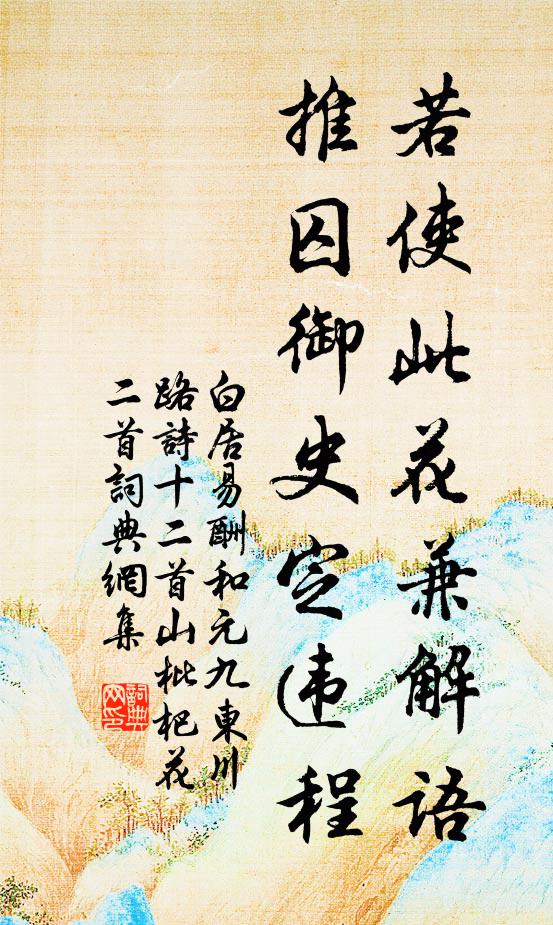 若使此花兼解语
推囚御史定违程
白居易酬和元九東川
路詩十二首山枇杷花
二首詞典網集
詞典
网印